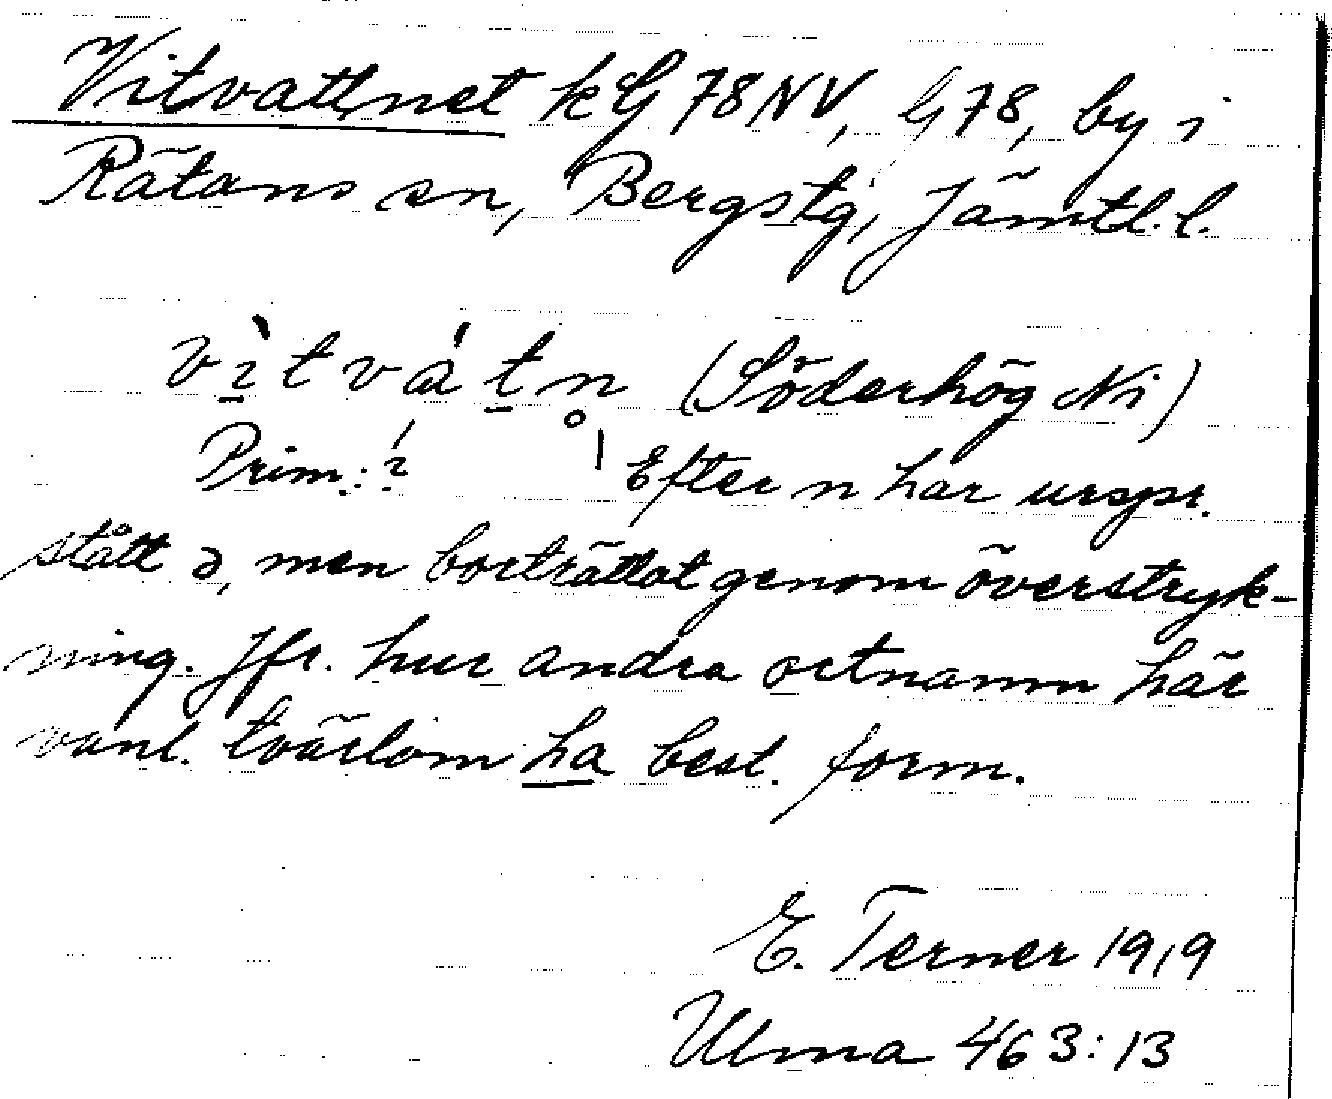 Vitvattnet kG 78NV, G 78, by i
Rätans sn, Bergstg, Jämtl. l.
vìtváṯn̥ (Söderhög Ni)
Prim.: í | Efter n har urspr.
stått ə, men borträttat genom överstryk-
ning. Jfr. hur andra ortnamn här
vanl. tvärtom ha best. form.
E. Terner 1919
Ulma 463:13